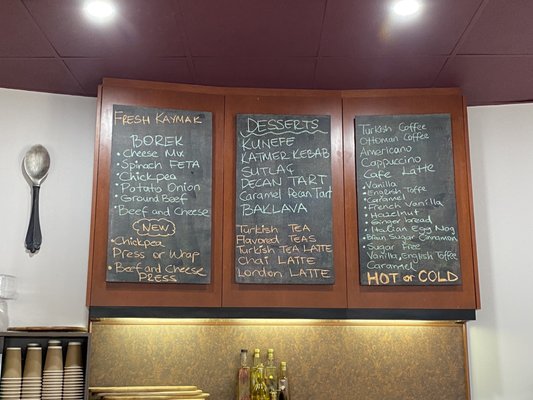 Fresh Kaymak
BOREK
• Cheese Mix
• Spinach FETA
• Chickpea
• Potato Onion
• Ground Beef
• Beef and Cheese
NEW
• Chickpea
Press or Wrap
• Beef and Cheese
PRESS
DESSERTS
KUNEFE
KATMER KEBAB
SUTLAÇ
PECAN TART
Caramel Pecan Tart
BAKLAVA
Turkish TEA
Flavored TEAS
Turkish TEA LATTE
Chai LATTE
London LATTE
Turkish Coffee
Ottoman Coffee
Americano
Cappuccino
Cafe Latte
• Vanilla
• English Toffee
• Caramel
• French Vanilla
• Hazelnut
• Gingerbread
• Italian Egg Nog
• Brown Sugar Cinnamon
• Sugar Free
Vanilla, English Toffee
Caramel
HOT or COLD